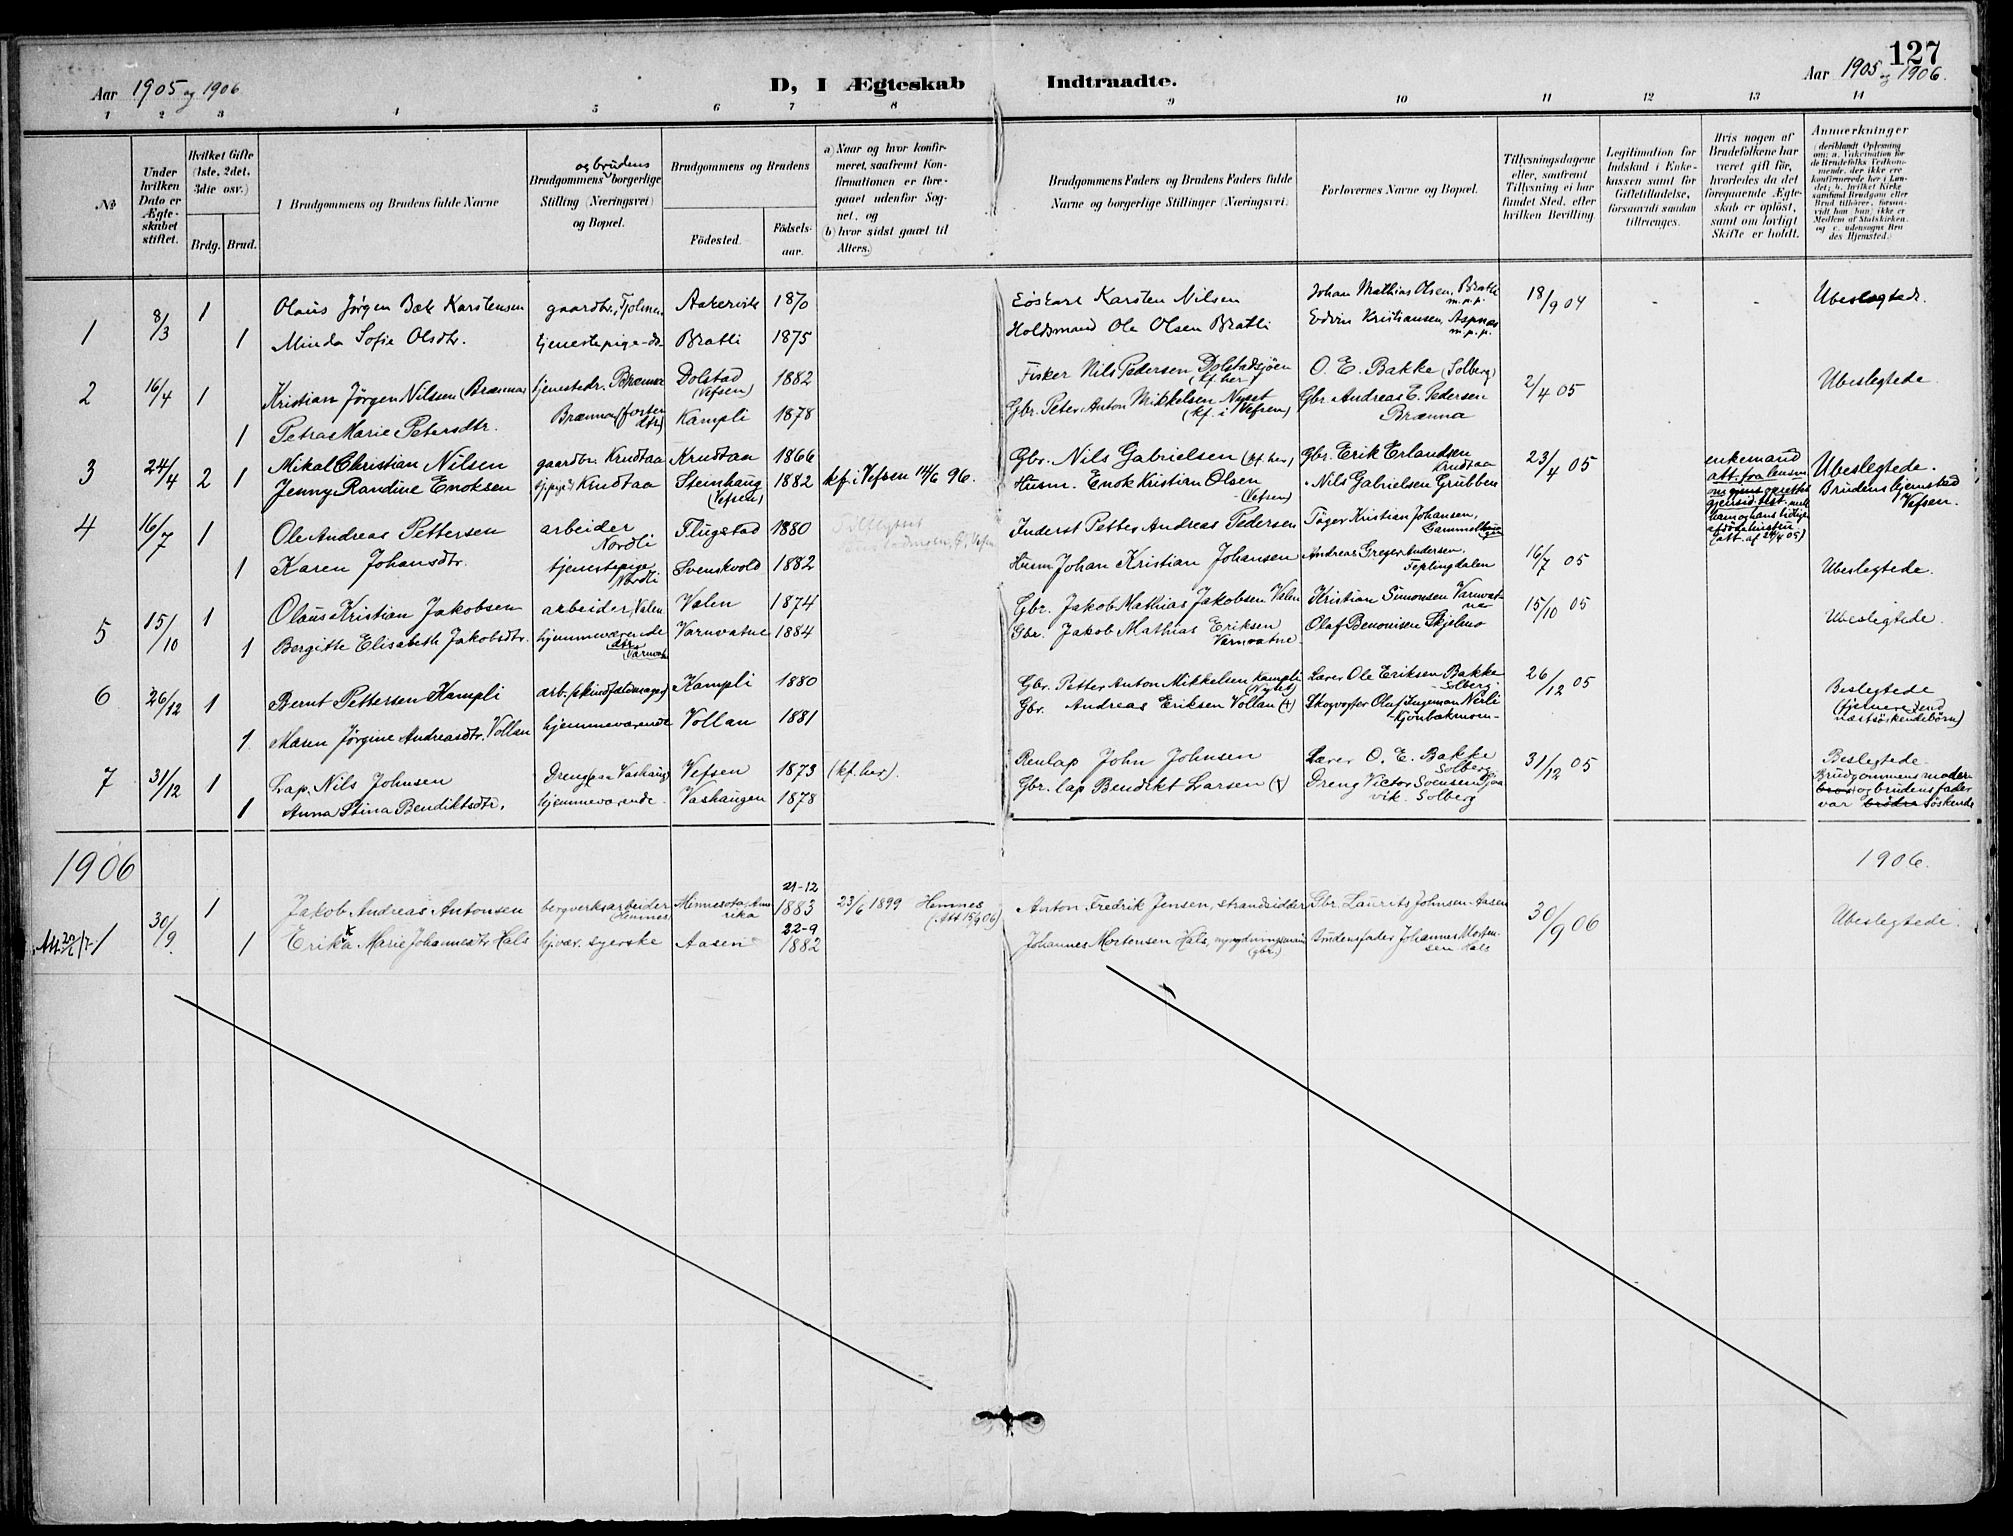 127
Aar 1905 og 1906
D, I Ægteskab Indtraadte.
Aar 1905 og 1906.
1 2 3 4 5 6 7 8 9 10 11 12 13 14
№
Under hvilken Dato er Ægteskabet stiftet.
Hvilket Gifte (1ste, 2det, 3die osv.)
Brdg. Brud.
I Brudgommens og Brudens fulde Navne
og brudens
Brudgommens borgerlige Stilling (Næringsvei) og Bopæl.
Brudgommens og Brudens
Fødested. Fødselsaar.
a) Naar og hvor konfirmeret, saafremt Konfirmationen er foregaaet udenfor Sognet, og
b) hvor sidst gaaet til Alters.
Brudgommens Faders og Brudens Faders fulde Navne og borgerlige Stillinger (Næringsvei).
Forlovernes Navne og Bopæl.
Tillysningsdagene eller, saafremt Tillysning ei har fundet Sted, efter hvilken Bevilling.
Legitimation for Indskud i Enkekassen samt for Giftetilladelse, forsaavidt saadan tiltrænges.
Hvis nogen af Brudefolkene har været gift før, hvorledes da det foregaaende Ægteskab er opløst, samt om lovligt Skifte er holdt.
Anmerkninger
(deriblandt Oplysning om: a. Vakcination for de Brudefolks Vedkommende, der ikke ere konfirmerede her i Landet; b. hvilket Kirkesamfund Brudgom eller Brud tilhører, forsaavidt han (hun) ikke er Medlem af Statskirken, og c. udensogns Brudes Hjemsted.)
1 8/3 1 Olaus Jørgen Bak Karstensen gaardbr., Fjolmen Aakervik 1870 Karsten Nilsen Johan Mathias Olsen, Bratli m.p.p. 18/9 04 Ubeslegtede.
1 Minda Sofie Olsdtr. tjenestepige Bratli 1875 Holdsmand Ole Olsen Bratli Edvin Kristiansen, Aspnes m.p.p.
2 16/4 1 Kristian Jørgen Nilsen (Brænna) tjenestedr. Brænna Dolstad (Vefsen) 1882 Fisker Nils Pedersen Dolstadsjøen (kf. her) O. E. Bakke (Solberg) 2/4 05 Ubeslegtede.
1 Petra Marie Petersdtr. Brænna (foster dtr) Kampli 1878 Gbr. Peter Anton Mikkelsen Nyset (kf. i Vefsen) Gbr. Andreas E. Pedersen Brænna
3 24/4 2 Mikal Christian Nilsen gaardbr. Krudtaa Krudtaa 1866 Gbr. Nils Gabrielsen (kf. her) Gbr. Erik Erlandsen Krudtaa 23/4 05 enkemand att. fra lensm. Ubeslegtede.
1 Jenny Randine Enoksen Krudtaa Steinhaug (Vefsen) 1882 kf. i Vefsen 14/6 96. Husm. Enok Kristian Olsen (Vefsen) Nils Gabrielsen Grubben Brudens hjemsted Vefsen.
4 16/7 1 Ole Andreas Pettersen arbeider Nordli Flugstad 1880 Inderst Petter Andreas Pedersen Kristian Johansen,
1 Karen Johansdtr. tjenestepige Nordli Svenskvold 1882 Husm. Johan Kristian Johansen Andreas Greger Andersen, Feplingdalen 16/7 05 Ubeslegtede.
5 15/10 1 Olaus Kristian Jakobsen arbeider, Valen Valen 1874 Gbr. Jakob Mathias Jakobsen Valen Kristian Simonsen Varnvatne 15/10 05 Ubeslegtede.
1 Bergitte Elisabeth Jakobsdtr. hjemmeværende dtr. Varnvatn Varnvatne 1884 Gbr. Jakob Mathias Eriksen Varnvatne Olaf Benonisen Skjelmo
6 26/12 1 Bernt Pettersen Kampli arb. (skindfeldmager) Kampli 1880 Gbr. Petter Anton Mikkelsen Kampli (Nyset) Lærer Ole Eriksen Bakke Solberg 26/12 05 Beslegtede (fjernere end næstsøskendebørn)
1 Maren Jørgine Andreasdtr. Vollan hjemmeværende Vollan 1881 Gbr. Andreas Eriksen Vollan (+) Skogvogter Olaf Ingeman Nerli
7 31/12 1 Lap. Nils Johnsen Dreng (paa Vashaug) Vefsen 1873 (kf. her). Renlap John Johnsen Lærer O. E. Bakke Solberg 31/12 05 Beslegtede.
1 Anna Stina Bendiktsdtr. hjemmeværende. Vashaugen 1878 Gbr. lap Bendikt Larsen Dreng Victor Svensen Solberg Brudgommens moder og brudens fader var brødre søskende
1906 1906.
1 30/9. 1 Jakob Andreas Antonsen bergverksarbeider (Hemnes) Minnesota, Amerika 21-12 1883 23/6 1899 Hemnes Anton Fredrik Jensen, strandsidder Gbr. Laurits Johnsen Aasen 30/9 06 Ubeslegtede.
1 Erika Marie Johannesdtr Hals hj.vær. syerske Aasen 22-9 1882 Johannes Mortensen Hals, (gbr.) Brudens fader Johannes Mortensen Hals